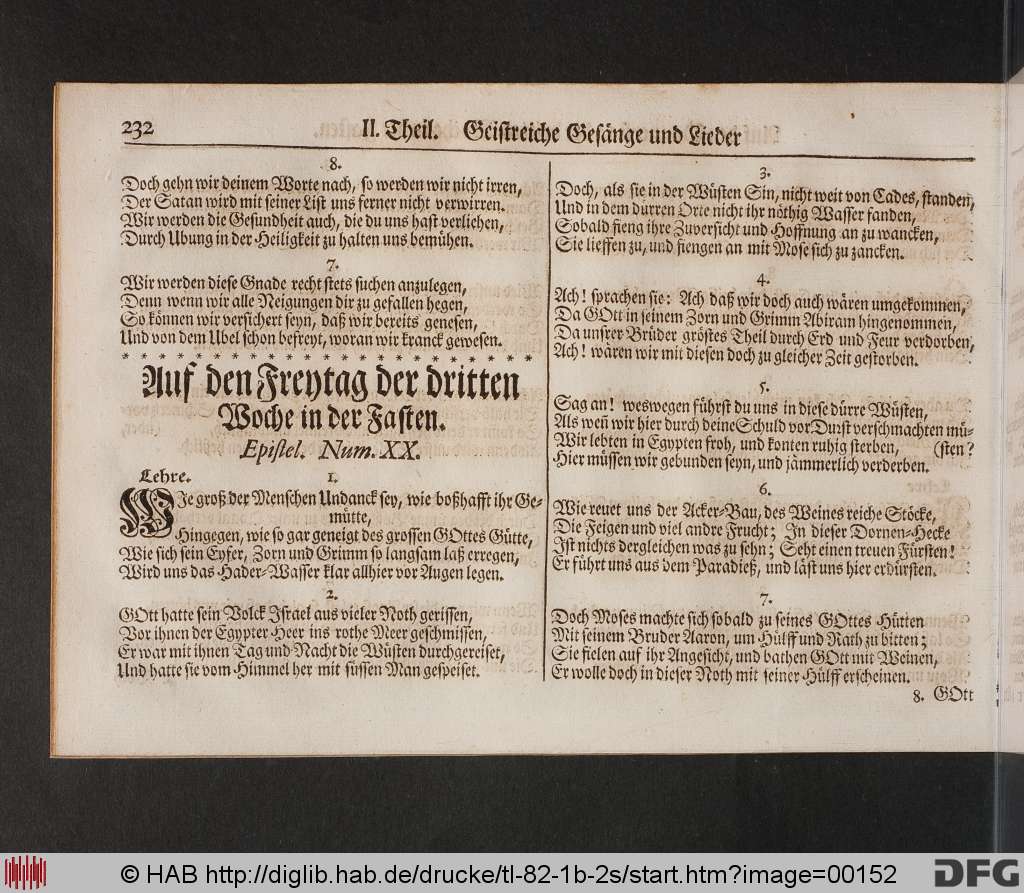 232 II. Theil. Geistreiche Gesänge und Lieder
8.
Doch gehn wir deinem Worte nach, so werden wir nicht irren,
Der Satan wird mit seiner List uns ferner nicht verwirren.
Wir werden die Gesundheit auch, die du uns hast verliehen,
Durch Ubung in der Heiligkeit zu halten uns bemühen.
7.
Wir werden diese Gnade recht stets suchen anzulegen,
Denn wenn wir alle Neigungen dir zu gefallen hegen,
So können wir versichert seyn, daß wir bereits genesen,
Und von dem Ubel schon befreyt, woran wir kranck gewesen.
* * * * * * * * * * * * * * * * * * * * * * * * * * *
Auf den Freytag der dritten
Woche in der Fasten.
Epistel. Num. XX.
Lehre. 1.
WJe groß der Menschen Undanck sey, wie boßhafft ihr Ge-
mütte,
Hingegen, wie so gar geneigt des grossen GOttes Gütte,
Wie sich sein Eyfer, Zorn und Grimm so langsam laß erregen,
Wird uns das Hader-Wasser klar allhier vor Augen legen.
2.
GOtt hatte sein Volck Israel aus vieler Noth gerissen,
Vor ihnen der Egypter Heer ins rothe Meer geschmissen,
Er war mit ihnen Tag und Nacht die Wüsten durchgereiset,
Und hatte sie vom Himmel her mit süssen Man gespeiset.
3.
Doch, als sie in der Wüsten Sin, nicht weit von Cades, standen,
Und in dem dürren Orte nicht ihr nöthig Wasser fanden,
Sobald fieng ihre Zuversicht und Hoffnung an zu wancken,
Sie lieffen zu, und fiengen an mit Mose sich zu zancken.
4.
Ach! sprachen sie: Ach daß wir doch auch wären umgekommen,
Da GOtt in seinem Zorn und Grimm Abiram hingenommen,
Da unsrer Brüder gröstes Theil durch Erd und Feur verdorben,
Ach! wären wir mit diesen doch zu gleicher Zeit gestorben.
5.
Sag an! weswegen führst du uns in diese dürre Wüsten,
Als weñ wir hier durch deine Schuld vor Durst verschmachten mü-
Wir lebten in Egypten froh, und konten ruhig sterben, (sten?
Hier müssen wir gebunden seyn, und jämmerlich verderben.
6.
Wie reuet uns der Acker-Bau, des Weines reiche Stöcke,
Die Feigen und viel andre Frucht; In dieser Dornen-Hecke
Ist nichts dergleichen was zu sehn; Seht einen treuen Fürsten!
Er führt uns aus dem Paradieß, und läst uns hier erdürsten.
7.
Doch Moses machte sich sobald zu seines GOttes Hütten
Mit seinem Bruder Aaron, um Hülff und Rath zu bitten;
Sie fielen auf ihr Angesicht, und bathen GOtt mit Weinen,
Er wolle doch in dieser Noth mit seiner Hülff erscheinen.
8. GOtt
© HAB http://diglib.hab.de/drucke/tl-82-1b-2s/start.htm?image=00152
DFG